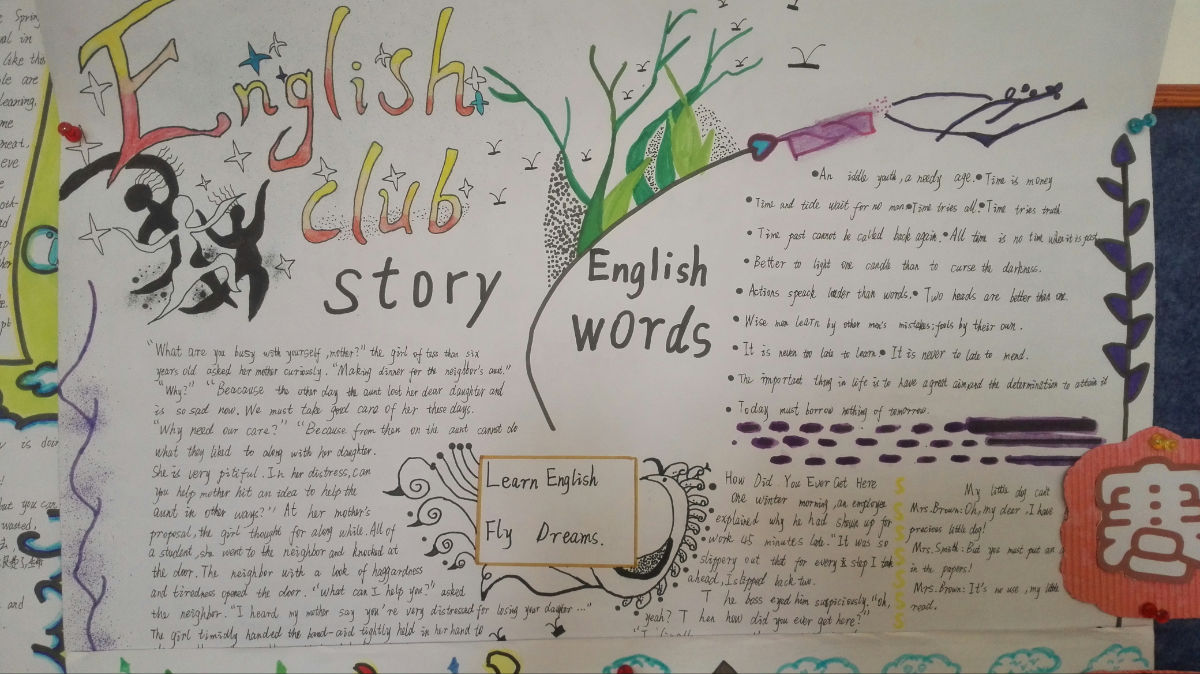 English
club
story
"What are you busy with yourself, mother?" the girl of less than six
years old asked her mother curiously. "Making dinner for the neighbor's aunt."
"Why?" "Beacause the other day the aunt lost her dear daughter and
is so sad now. We must take good care of her these days.
"Why need our care?" "Because from then on the aunt cannot do
what they liked to along with her daughter.
She is very pitiful. In her distress, can
you help mother hit an idea to help the
aunt in other ways?" At her mother's
proposal, the girl thought for along while. All of
a student, she went to the neighbor and knocked at
the door. The neighbor with a look of haggardness
and tiredness opened the door. "What can I help you?" asked
the neighbor. "I heard my mother say you're very distressed for losing your daughter ..."
The girl timidly handed the band-aid tightly held in her hand to
English
words
•An iddle youth, a needy age. •Time is money
•Time and tide wait for no man •Time tries all. •Time tries truth.
•Time past cannot be called back again. •All time is no time when it is past
•Better to light one candle than to curse the darkness.
•Actions speack louder than words. • Two heads are better than one.
•Wise men learn by other men's mistakes; fools by their own.
•It is never too late to learn. • It is never to late to mend.
•The important thing in life is to have a great aim and the determination to attain it
•Today must borrow nothing of tomorrow.
Learn English
Fly Dreams.
How Did You Ever Get Here
One winter morning, an employee
explained why he had shown up for
work 45 minutes late. "It was so
slippery out that for every step I took
ahead, I slipped back two.
The boss eyed him suspiciously. "Oh,
yeah? Then how did you ever get here?"
"I finally
S
S
S
S
S
S
S
My little dog can't
Mrs. Brown: Oh, my dear, I have
precious little dog!
Mrs. Smith: But you must put an
in the papers!
Mrs. Brown: It's no use, my little
read.